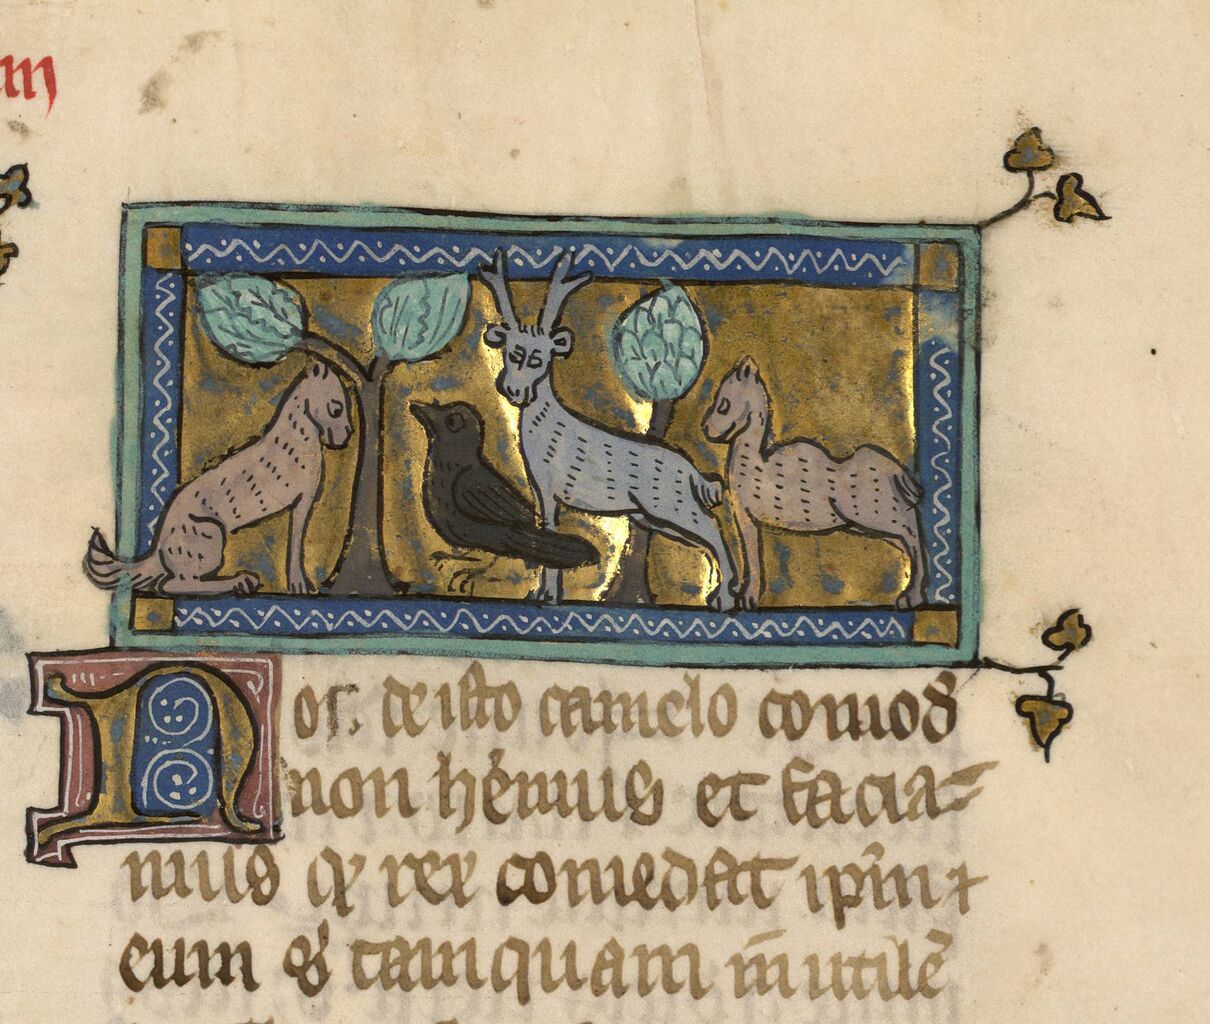 m
Nos. de isto camelo comod̄
non hēmus et facia-
mus qꝫ rex comedat ip̄m ⁊
eum tamquam īnutilē